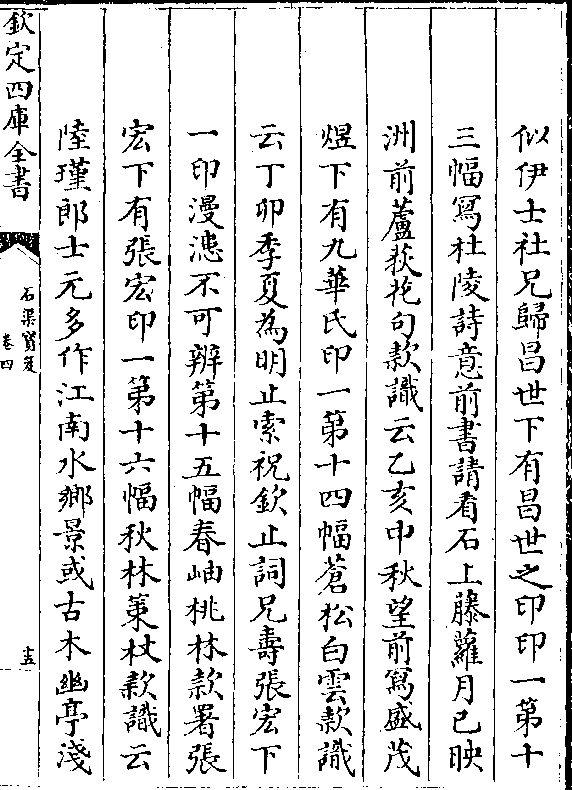 似伊士社兄歸昌世下有昌世之印印一第十
三幅寫杜陵詩意前書請看石上藤蘿月已映
洲前蘆荻花句款識云乙亥中秋望前寫盛茂
煜下有九華氏印一第十四幅蒼松白雲款識
云丁卯季夏為明止索祝欽止詞兄壽張宏下
一印漫漶不可辨第十五幅春岫桃林款署張
宏下有張宏印一第十六幅秋林策杖款識云
陸瑾郎士元多作江南水鄉景或古木幽亭淺
欽定四庫全書
石渠寶笈
卷四
十五